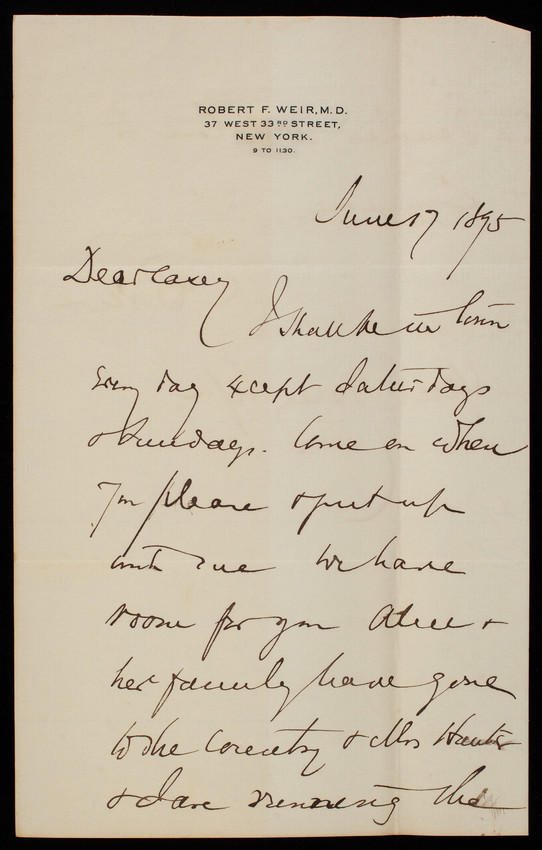 ROBERT F. WEIR, M.D.
37 WEST 33RD STREET,
NEW YORK.
9 TO 11.30.
June 17 1895
Dear Casey
I shall be in town
Every day except Saturdays
& Sundays. Come on when
you please & put up
with me We have
room for you Alice &
her family have gone
to the country & Mrs
& I are running the